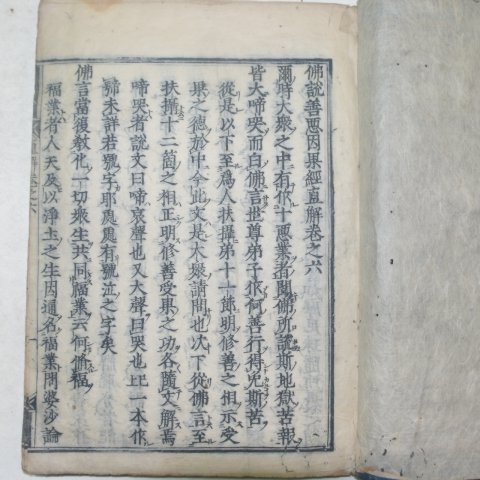 佛說善惡因果經直解卷之六
爾時大衆之中有作十惡業者聞佛所說斯地獄苦報
皆大啼哭而白佛言世尊弟子作何善行得免斯苦
從是以下至爲人扶攝第十一節明修善之相示受
果之德於中今此文是大衆請問也次下從佛言至
扶攝十二箇之相正明修善受果之功各隨文解焉
啼哭者說文曰啼哀聲也又大聲曰哭也此一本作
號字耶恩有號泣之字矣
佛言當復教化一切衆生共同福業云何脩福
福業者人天及以淨土之生因通名福業問婆沙論